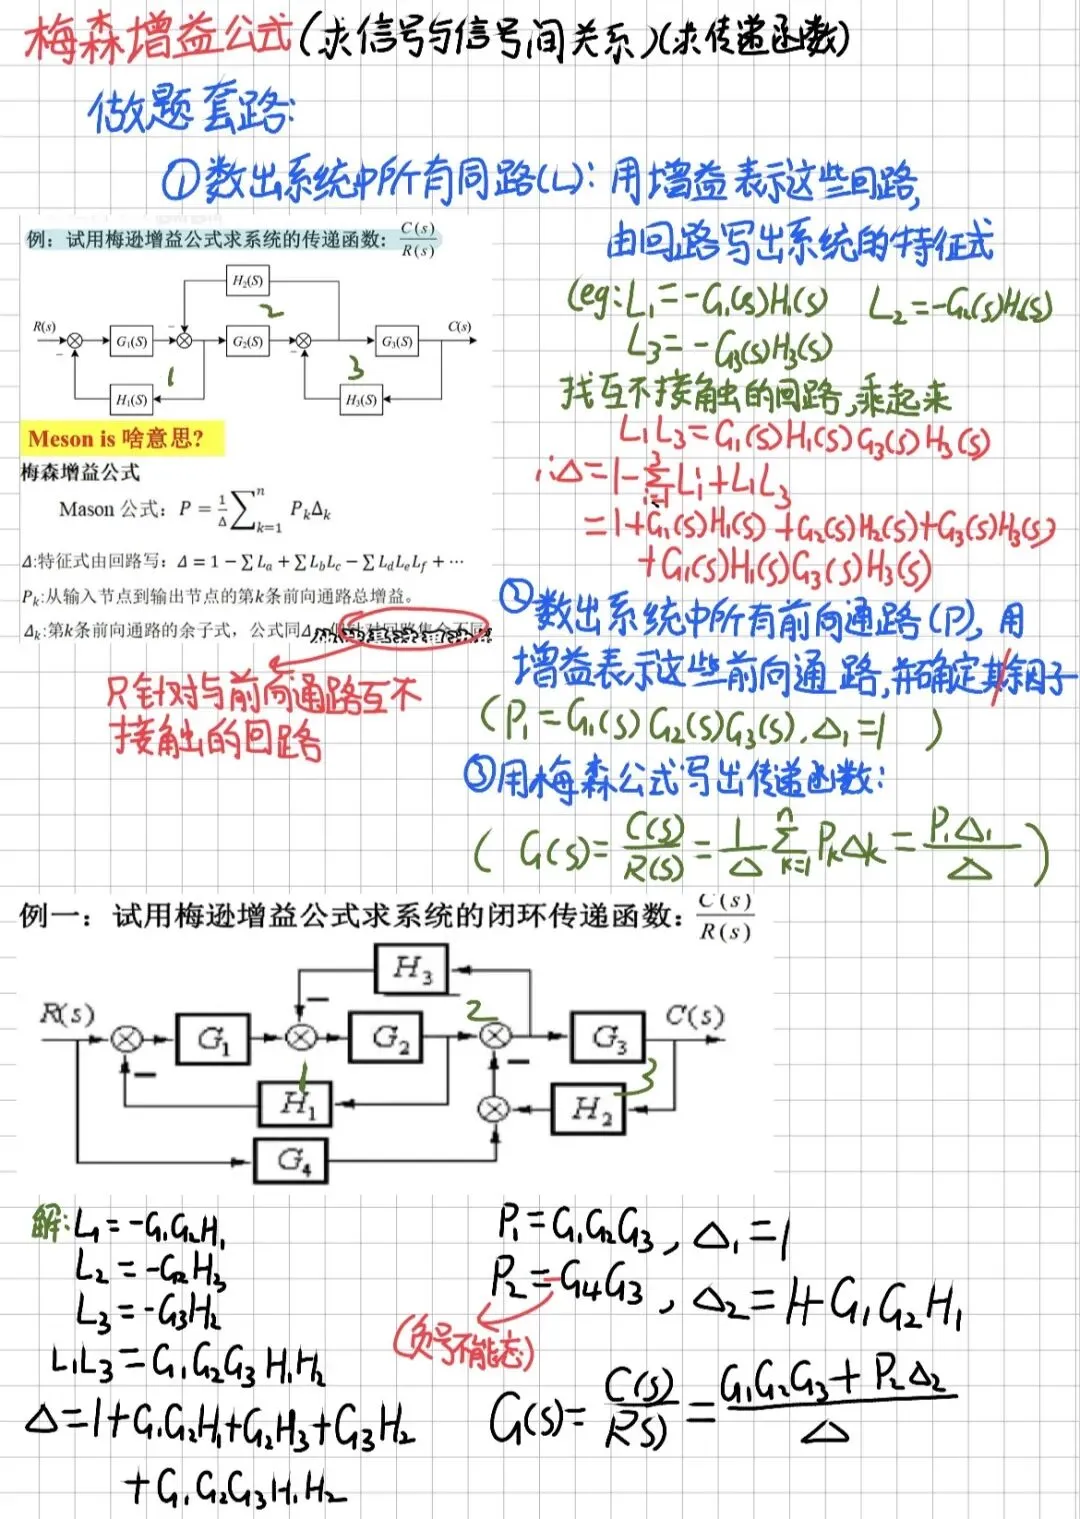 梅森增益公式(求信号与信号间关系)(求传递函数)
做题套路:
①数出系统中所有回路(L): 用增益表示这些回路,
由回路写出系统的特征式
例：试用梅逊增益公式求系统的传递函数: C(s)/R(s)
H₂(S)
2
R(s)
G₁(S)
G₂(S)
G₃(S)
C(s)
1
3
H₁(S)
H₃(S)
(eg: L₁=-G₁(s)H₁(s) L₂=-G₂(s)H₂(s)
L₃=-G₃(s)H₃(s)
找互不接触的回路,乘起来
L₁L₃=G₁(s)H₁(s)G₃(s)H₃(s)
∴Δ=1-∑³ᵢ₌₁Lᵢ+L₁L₃
=1+G₁(s)H₁(s)+G₂(s)H₂(s)+G₃(s)H₃(s)
+G₁(s)H₁(s)G₃(s)H₃(s)
Meson is 啥意思?
梅森增益公式
Mason 公式: P = 1/Δ ∑ⁿₖ₌₁ PₖΔₖ
Δ:特征式由回路写: Δ = 1 − ∑Lₐ + ∑L_bL_c − ∑L_dL_eL_f + ⋯
Pₖ:从输入节点到输出节点的第k条前向通路总增益。
Δₖ:第k条前向通路的余子式，公式同Δ
只针对与前向通路互不
接触的回路
②数出系统中所有前向通路(P), 用
增益表示这些前向通路,并确定其余因子
(P₁=G₁(s)G₂(s)G₃(s),Δ₁=1 )
③用梅森公式写出传递函数:
( G(s)=C(s)/R(s)=1/Δ ∑ⁿₖ₌₁PₖΔₖ=P₁Δ₁/Δ )
例一：试用梅逊增益公式求系统的闭环传递函数: C(s)/R(s)
H₃
2
R(s)
G₁
G₂
G₃
C(s)
1
3
H₁
H₂
G₄
解: L₁=-G₁G₂H₁
L₂=-G₂H₃
L₃=-G₃H₂
L₁L₃=G₁G₂G₃H₁H₂
Δ=1+G₁G₂H₁+G₂H₃+G₃H₂
+G₁G₂G₃H₁H₂
P₁=G₁G₂G₃, Δ₁=1
P₂=-G₄G₃, Δ₂=1+G₁G₂H₁
(负号不能忘)
G(s)=C(s)/R(s)=G₁G₂G₃+P₂Δ₂/Δ